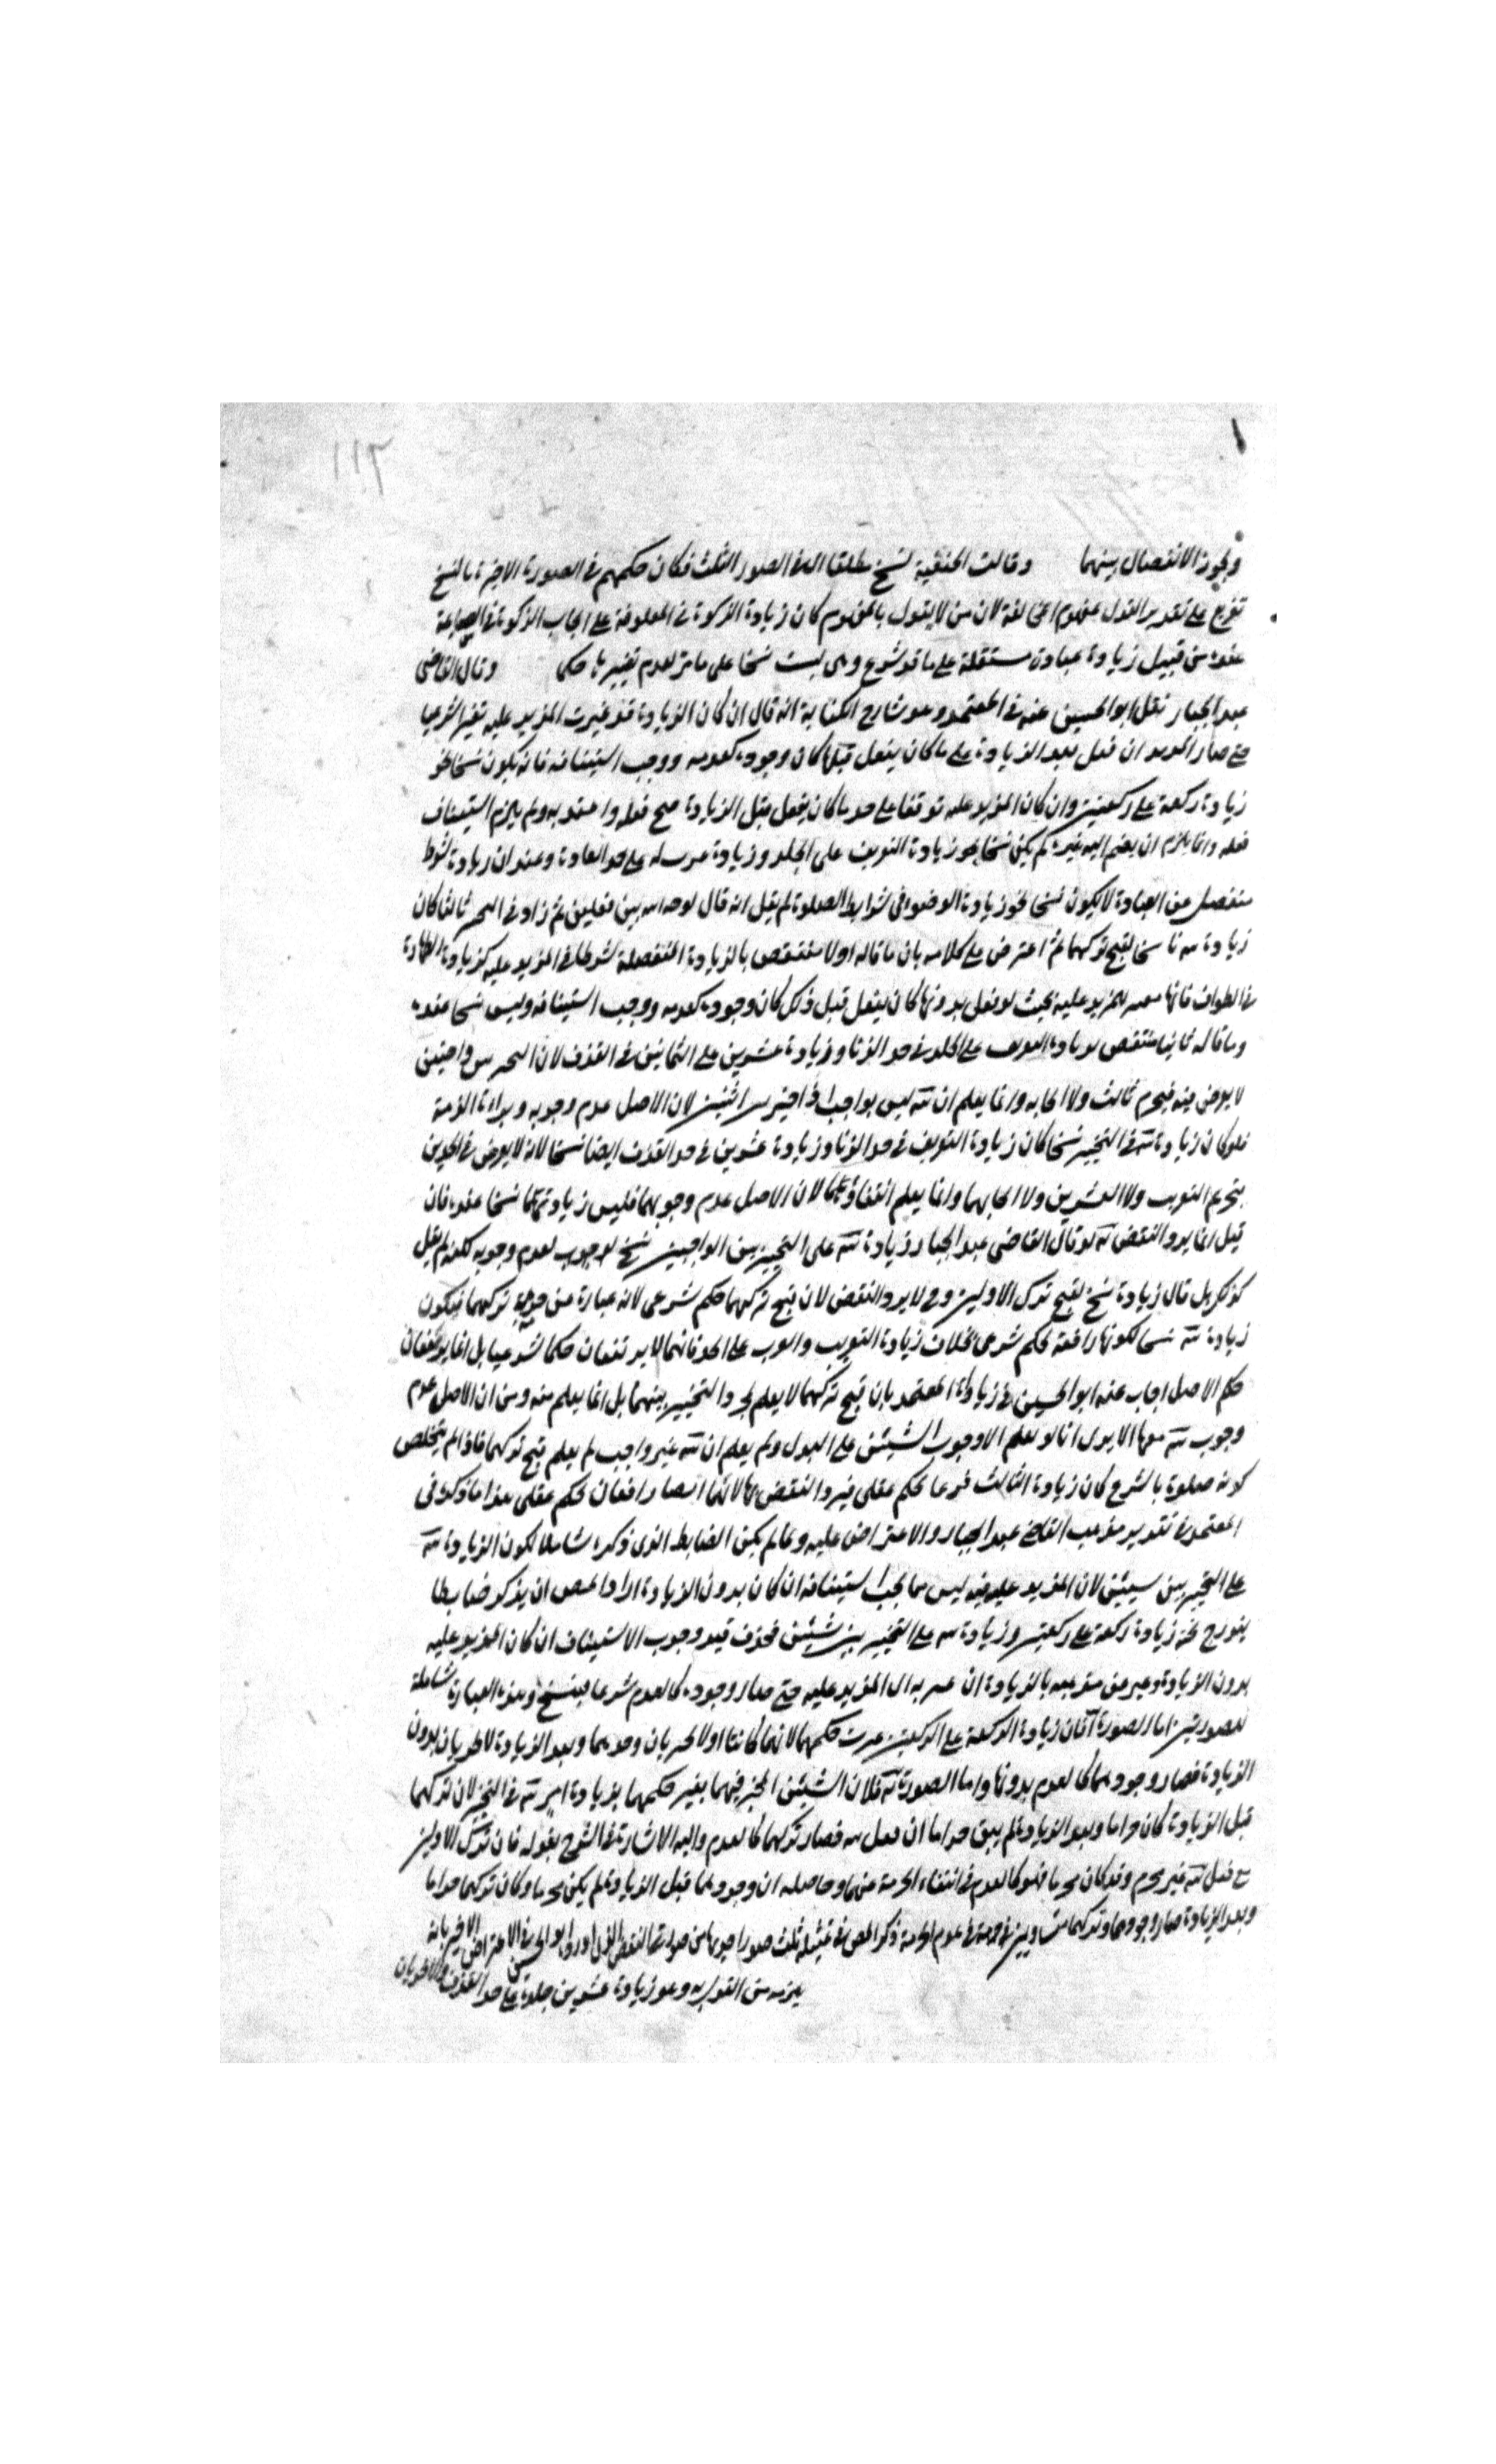 ١١٣
ويجوز الانفصال بينهما وقالت الحنفية نسخ مطلقا اي في الصور الثلث فكان حكمهم في الصورة الاخيرة بالنسخ
تفريع على تقدير القول بمفهوم المخالفة لان من لا يقول بالمفهوم كان زيادة الزكوة في المعلوفة على ايجاب الزكوة في السائمة
عنده من قبيل زيادة عبادة مستقلة على ما قد شرع وهي ليست نسخا على ما مر لعدم تغييرها حكما وقال القاضى
عبد الجبار نقل ابو الحسين عنه في المعتمد وهو شارح الكتابة انه قال ان كان الزيادة قد غيرت المزيد عليه تغيرا شرعيا
حتى صار المزيد ان فعل بعد الزيادة على ما كان يفعل قبلها كان وجوده كعدمه ووجب استينافه فانه يكون نسخا نحو
زيادة ركعة على ركعتين وان كان المزيد عليه لو فعل على حد ما كان يفعل قبل الزيادة صح فعله واعتد به ولم يلزم استيناف
فعله وانما يلزم ان يضم اليه غيره لم يكن نسخا نحو زيادة التغريب على الجلد وزيادة عشرين على حد القذف وعنده ان زيادة شرط
منفصل عن العبادة لا يكون نسخا نحو زيادة الوضوء في شرايط الصلوة ثم قال انه لو خير الله بين فعلين ثم زاد في التخيير ثالثا كان
زيادته ناسخا لقبح تركهما ثم اعترض على كلامه بان ما قاله اولا منتقض بالزيادة المنفصلة شرطا في المزيد عليه كزيادة الطهارة
في الطواف فانها مغيرة للمزيد عليه بحيث لو فعل بدونها كان يفعل قبل ذلك كان وجوده كعدمه ووجب استينافه وليس نسخا عنده
وما قاله ثانيا منتقض بزيادة التغريب على الجلد في حد الزنا وزيادة عشرين على الثمانين في القذف لان التخيير بين واجبين
لا يعرض فيه تحريم ثالث ولا ايجابه وانما يعلم ان الثالث ليس بواجب اذا خير بين اثنين لان الاصل عدم وجوبه وبراءة الذمة
فلو كان زيادة الثالث في التخيير نسخا كان زيادة التغريب في حد الزنا وزيادة عشرين في حد القذف ايضا نسخا لانه لا يعرض في الحدين
بتحريم التغريب ولا العشرين ولا ايجابهما وانما يعلم انتفاؤهما لان الاصل عدم وجوبهما فليس زيادتهما نسخا عنده فان
قيل انما يرد النقض لو قال القاضى عبد الجبار زيادة الثالث على التخيير بين الواجبين نسخ لوجوب لعدم وجوبه لكنه لم يقل
كذلك بل قال زيادة نسخ لقبح ترك الاولين وح لا يرد النقض لان قبح تركهما حكم شرعى لانه عبارة عن حرمة تركهما فيكون
زيادة الثالث نسخا لكونها رافعة لحكم شرعى بخلاف زيادة التغريب والعشرين على الحد فانهما لا يرتفعان حكما شرعيا بل انما يرفعان
حكم الاصل اجاب عنه ابو الحسين في زيادات المعتمد بان قبح تركهما لا يعلم بمجرد التخيير بينهما بل انما يعلم منه ومن ان الاصل عدم
وجوب الثالث معهما الا يرى انا لو نعلم الا وجوب الشيئين على البدل ولم يعلم ان الثالث غير واجب لم يعلم قبح تركهما فاذا لم يتخلص
كونه معلوما بالشرع كان زيادة الثالث رفعا لحكم عقلى فيرد النقض بها لانهما ايضا رافعان لحكم عقلى هذا ما ذكره في
المعتمد في تقرير مذهب القاضي عبد الجبار والاعتراض عليه ولما لم يكن الضابط الذى ذكره شاملا لكون الزيادة الثالث
على التخيير بين شيئين لان المزيد عليه فيه ليس مما يجب استينافه ان كان بدون الزيادة اراد المص ان يذكر ضابطا
يندرج فيه زيادة ركعة على ركعتين وزيادة الثالث على التخيير بين شيئين فحذف قيد وجوب الاستيناف ان كان المزيد عليه
بدون الزيادة وعبر عن مذهبه بالزيادة ان غيرت المزيد عليه حتى صار وجوده كالعدم شرعا فنسخ وهذه العبارة شاملة
للصورتين اما الصورة الاولى فان زيادة الركعة على الركعتين غيرت حكمهما لانهما كانتا اولا تجزيان وحدهما وبعد الزيادة لا تجزيان بدون
الزيادة فصار وجودهما كالعدم بدونها واما الصورة الثانية فلان الشيئين المخير فيهما يغير حكمهما بزيادة امر ثالث في التخيير لان تركهما
قبل الزيادة كان حراما وبعد الزيادة لم يبق حراما ان فعل الثالث فصار تركهما كالعدم واليه الاشارة في الشرح بقوله فان ترك الاولين
مع فعل الثالث غير محرم وقد كان محرما فهو كالعدم في انتفاء الحرمة عنهما وحاصله ان وجودهما قبل الزيادة لم يكن محرما وكان تركهما حراما
وبعد الزيادة صار وجودهما وتركهما متساويين في عدم الحرمة ذكر المص في تمثيله ثلث صور احديها من صورتي النقض الذى اورده ابو الحسين في الاعتراض الاخير بانه
يلزمه من القول به وهو زيادة عشرين جلدة على حد القذف والاخريان